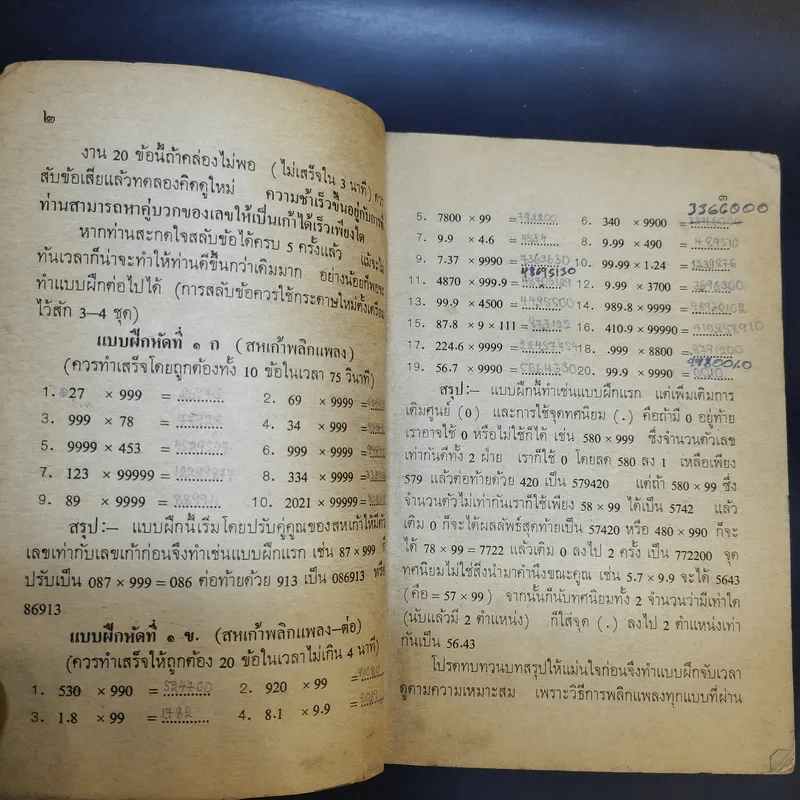 ๒
งาน 20 ข้อนี้ถ้าคล่องไม่พอ (ไม่เสร็จใน 3 นาที) ควร
สับข้อเสียแล้วทดลองคิดดูใหม่ ความช้าเร็วขึ้นอยู่กับการที่
ท่านสามารถหาคู่บวกของเลขให้เป็นเก้าได้เร็วเพียงใด
หากท่านสะกดใจสลับข้อได้ครบ 5 ครั้งแล้ว แม้จะไม่
ทันเวลาก็น่าจะทำให้ท่านดีขึ้นกว่าเดิมมาก อย่างน้อยก็พอจะ
ทำแบบฝึกต่อไปได้ (การสลับข้อควรใช้กระดาษใหม่ตั้งเตรียม
ไว้สัก 3–4 ชุด)
แบบฝึกหัดที่ ๑ ก (สหเก้าพลิกแพลง)
(ควรทำเสร็จโดยถูกต้องทั้ง 10 ข้อในเวลา 75 วินาที)
1. 27 × 999 = 2. 69 × 9999 =
3. 999 × 78 = 4. 34 × 999 =
5. 9999 × 453 = 6. 999 × 9999 =
7. 123 × 99999 = 8. 334 × 9999 =
9. 89 × 9999 = 10. 2021 × 99999 =
สรุป:– แบบฝึกนี้เริ่มโดยปรับคู่คูณของสหเก้าให้มีตัว
เลขเท่ากับเลขเก้าก่อนจึงทำเช่นแบบฝึกแรก เช่น 87 × 999 ก็
ปรับเป็น 087 × 999 = 086 ต่อท้ายด้วย 913 เป็น 086913 หรือ
86913
แบบฝึกหัดที่ ๑ ข. (สหเก้าพลิกแพลง–ต่อ)
(ควรทำเสร็จให้ถูกต้อง 20 ข้อในเวลาไม่เกิน 4 นาที)
1. 530 × 990 = 524700 2. 920 × 99 = 91080
3. 1.8 × 99 = 1782 4. 8.1 × 9.9 =
๓
3366000
5. 7800 × 99 = 6. 340 × 9900 =
7. 9.9 × 4.6 = 8. 9.99 × 490 =
9. 7.37 × 9990 = 10. 99.99 × 1.24 =
48695130
11. 4870 × 999.9 = 12. 9.99 × 3700 =
13. 99.9 × 4500 = 14. 989.8 × 9999 =
15. 87.8 × 9 × 111 = 16. 410.9 × 99990 =
17. 224.6 × 9999 = 18. .999 × 8800 =
19. 56.7 × 9990 = 20. 99.9 × 9990 =
สรุป:– แบบฝึกนี้ทำเช่นแบบฝึกแรก แต่เพิ่มเติมการ
เติมศูนย์ (0) และการใช้จุดทศนิยม (.) คือถ้ามี 0 อยู่ท้าย
เราอาจใช้ 0 หรือไม่ใช้ก็ได้ เช่น 580 × 999 ซึ่งจำนวนตัวเลข
เท่ากันดีทั้ง 2 ฝ่าย เราก็ใช้ 0 โดยลด 580 ลง 1 เหลือเพียง
579 แล้วต่อท้ายด้วย 420 เป็น 579420 แต่ถ้า 580 × 99 ซึ่ง
จำนวนตัวไม่เท่ากันเราก็ใช้เพียง 58 × 99 ได้เป็น 5742 แล้ว
เติม 0 ก็จะได้ผลลัพธ์สุดท้ายเป็น 57420 หรือ 480 × 990 ก็จะ
ได้ 78 × 99 = 7722 แล้วเติม 0 ลงไป 2 ครั้ง เป็น 772200 จุด
ทศนิยมไม่ใช่สิ่งนำมาคำนึงขณะคูณ เช่น 5.7 × 9.9 จะได้ 5643
(คือ = 57 × 99) จากนั้นก็นับทศนิยมทั้ง 2 จำนวนว่ามีเท่าใด
(นับแล้วมี 2 ตำแหน่ง) ก็ใส่จุด (.) ลงไป 2 ตำแหน่งเท่า
กันเป็น 56.43
โปรดทบทวนบทสรุปให้แม่นใจก่อนจึงทำแบบฝึกจับเวลา
ดูตามความเหมาะสม เพราะวิธีการพลิกแพลงทุกแบบที่ผ่าน